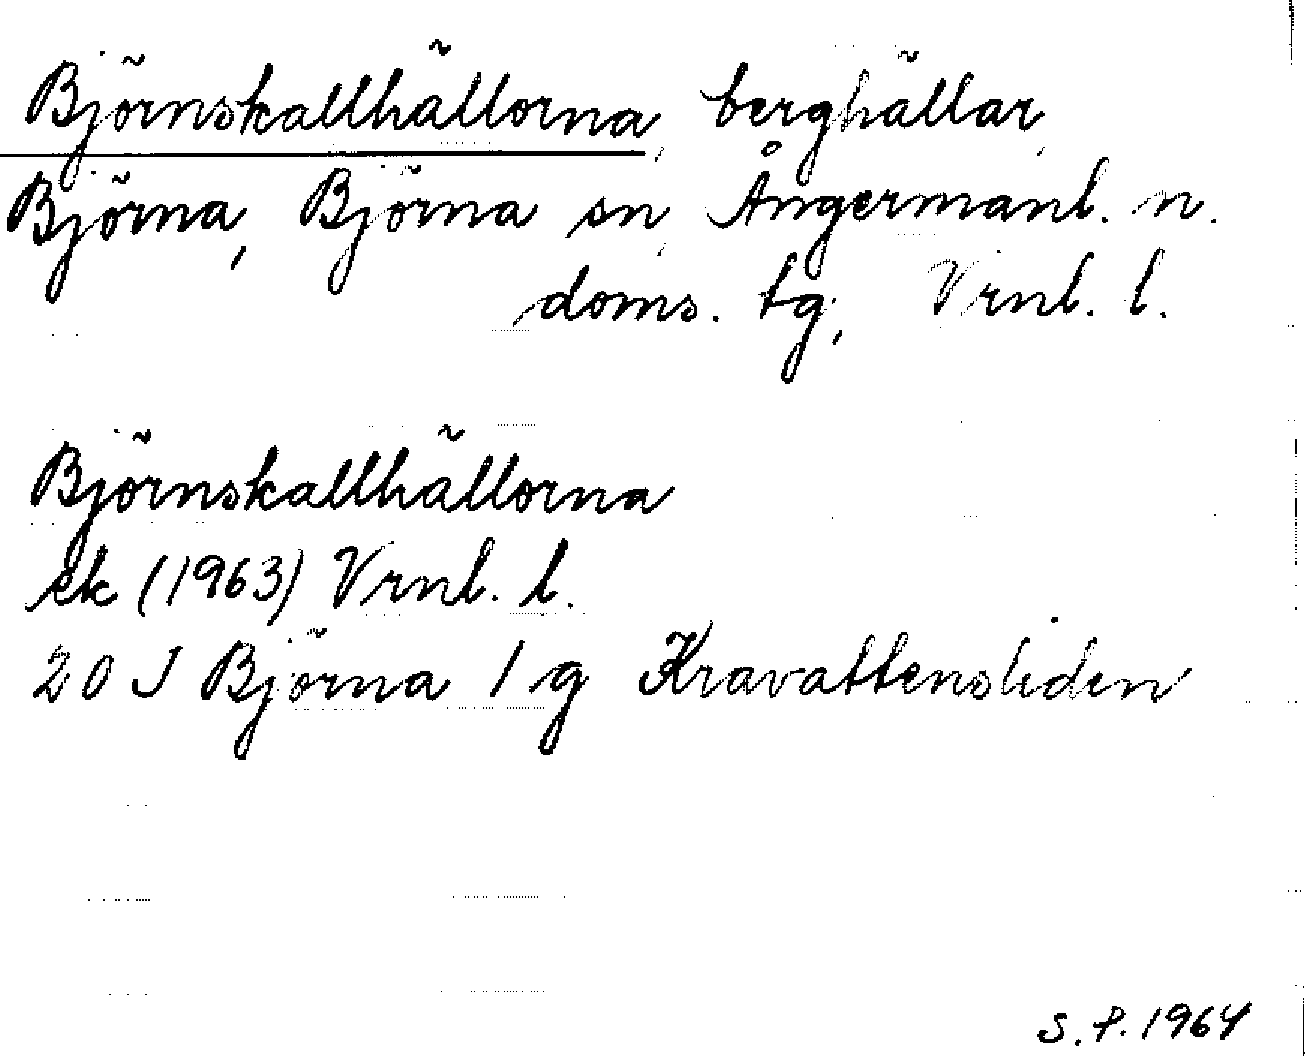 Björnskallhällorna, berghällar,
Björna, Björna sn, Ångermanl. n.
doms. tg, Vrnl. l.
Björnskallhällorna
ek (1963) Vrnl. l.
20 J Björna 1 g Kravattensliden
S.P. 1964